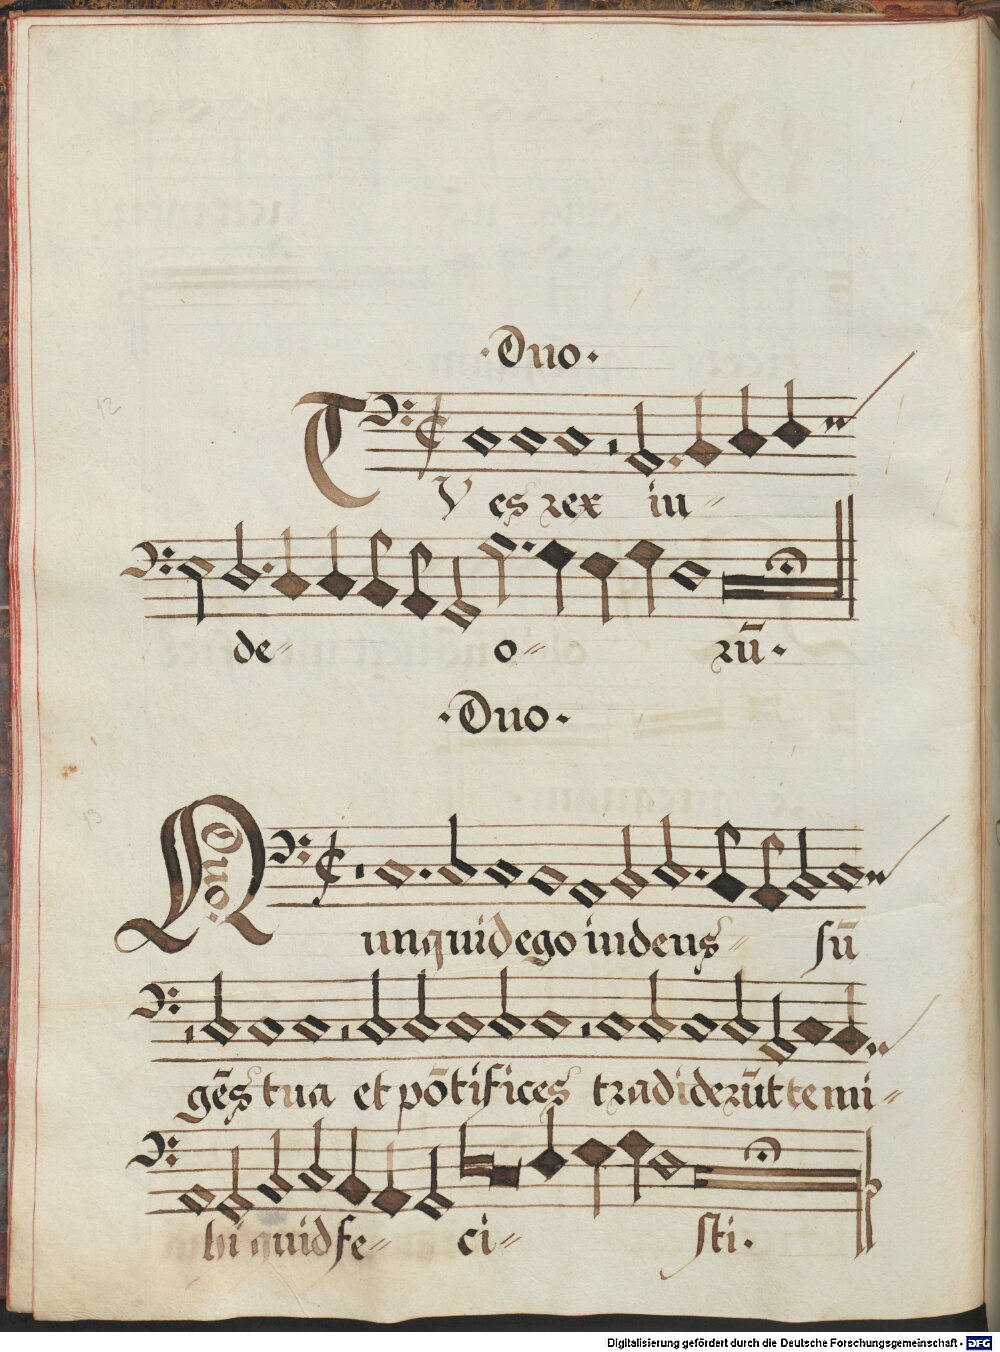 ·Duo·
12
TV es rex iu-
de- o- rū·
·Duo·
13
Duo·
Nunquid ego iudeus- sū
gēs tua et pōtifices tradiderūt te mi-
hi quid fe- ci- sti·
Digitalisierung gefördert durch die Deutsche Forschungsgemeinschaft - DFG